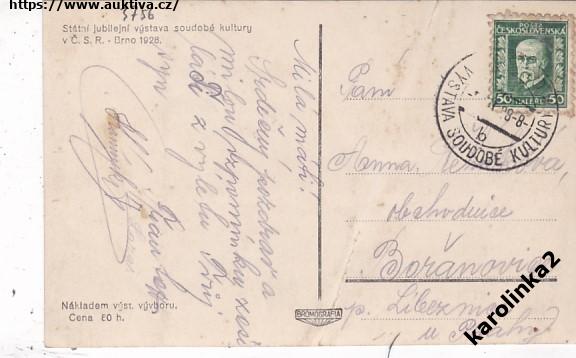 https://www.auktiva.cz/
5756
Státní jubilejní výstava soudobé kultury
v Č. S. R. - Brno 1928.
Milá máti!
Srdečný pozdrav a
milou vzpomínku zasí
lají z výletu
Nákladem výst. výboru.
Cena 80 h.
BROMOGRAFIA
POŠTA
ČESKOSLOVENSKÁ
50 HALÉŘŮ 50
VÝSTAVA SOUDOBÉ KULTURY
28-8-
b
Paní
Anna
obchodnice
Bořanovice
p. Libeznice
u Prahy
karolinka2